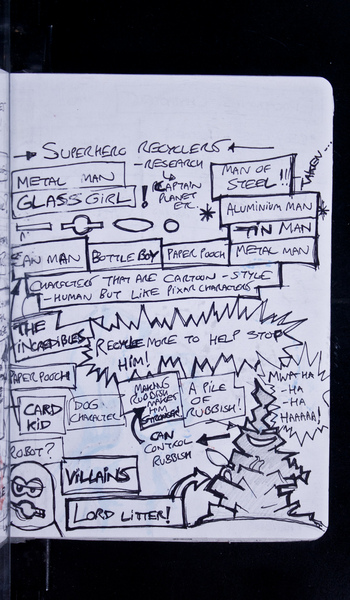 SUPERHERO RECYCLERS
- RESEARCH
CAPTAIN
PLANET
ETC.
METAL MAN
GLASS GIRL !
MAN OF
STEEL !!!
ALUMINIUM MAN
TIN MAN
METAL MAN
CAN MAN
BOTTLE BOY
PAPER POOCH
CHARACTERS THAT ARE CARTOON-STYLE
- HUMAN BUT LIKE PIXAR CHARACTERS
THE
INCREDIBLES
RECYCLE MORE TO HELP STOP
HIM!
PAPER POOCH
CARD
KID
DOG
CHARACTER
MAKING
RUBBISH
MAKES
HIM
STRONGER!
A PILE
OF
RUBBISH!
MWAHA
HA
-HA
HAAAAA!
CAN
CONTROL
RUBBISH
ROBOT?
VILLAINS
LORD LITTER!